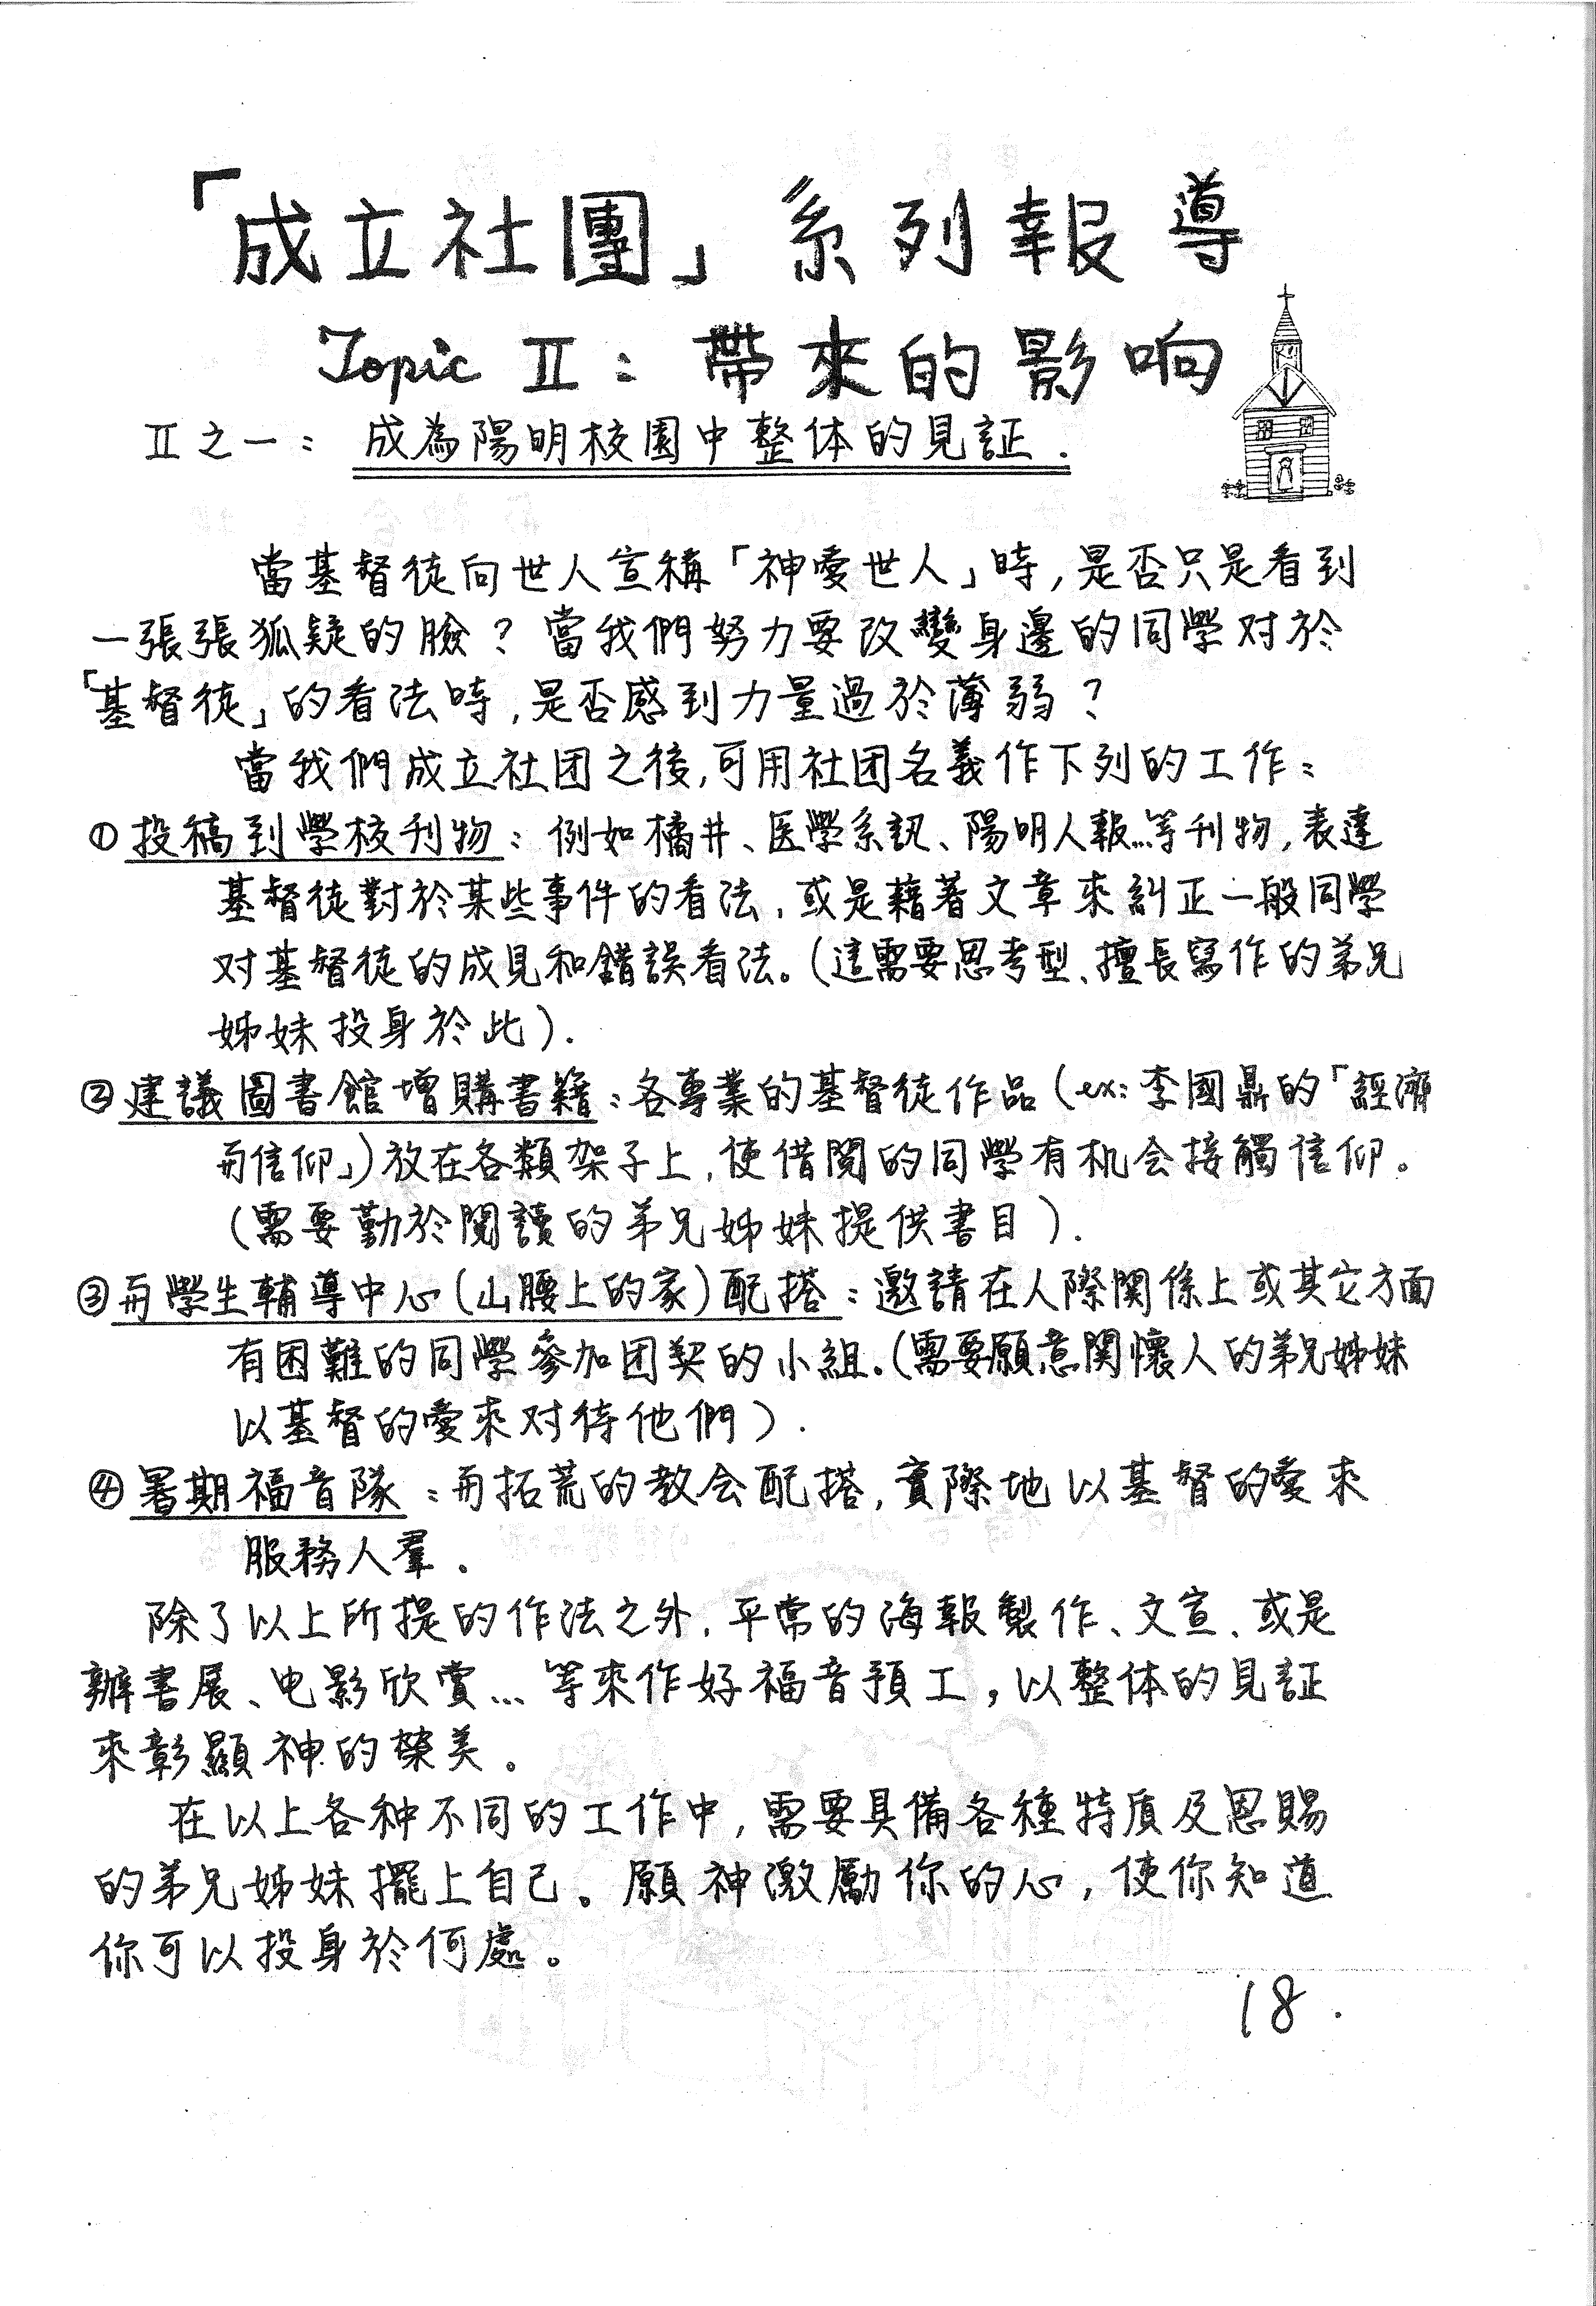 「成立社團」系列報導
Topic Ⅱ：帶來的影响
Ⅱ之一：成為陽明校園中整体的見証．
當基督徒向世人宣稱「神愛世人」時，是否只是看到
一張張狐疑的臉？當我們努力要改變身邊的同學对於
「基督徒」的看法時，是否感到力量過於薄弱？
當我們成立社团之後，可用社团名義作下列的工作：
①投稿到學校刊物：例如橘井、医學系訊、陽明人報…等刊物，表達
基督徒對於某些事件的看法，或是藉著文章來糾正一般同學
对基督徒的成見和錯誤看法。（這需要思考型、擅長寫作的弟兄
姊妹投身於此）．
②建議圖書館增購書籍：各專業的基督徒作品（ex：李國鼎的「經濟
与信仰」）放在各類架子上，使借閱的同學有机会接觸信仰。
（需要勤於閱讀的弟兄姊妹提供書目）．
③与學生輔導中心（山腰上的家）配搭：邀請在人際関係上或其它方面
有困難的同學參加团契的小組．（需要願意関懷人的弟兄姊妹
以基督的愛來对待他們）．
④暑期福音隊：与拓荒的教会配搭，實際地以基督的愛來
服務人羣．
除了以上所提的作法之外，平常的海報製作、文宣、或是
辦書展、电影欣賞…等來作好福音預工，以整体的見証
來彰顯神的榮美。
在以上各种不同的工作中，需要具備各種特质及恩賜
的弟兄姊妹擺上自己。願神激勵你的心，使你知道
你可以投身於何處。
18．